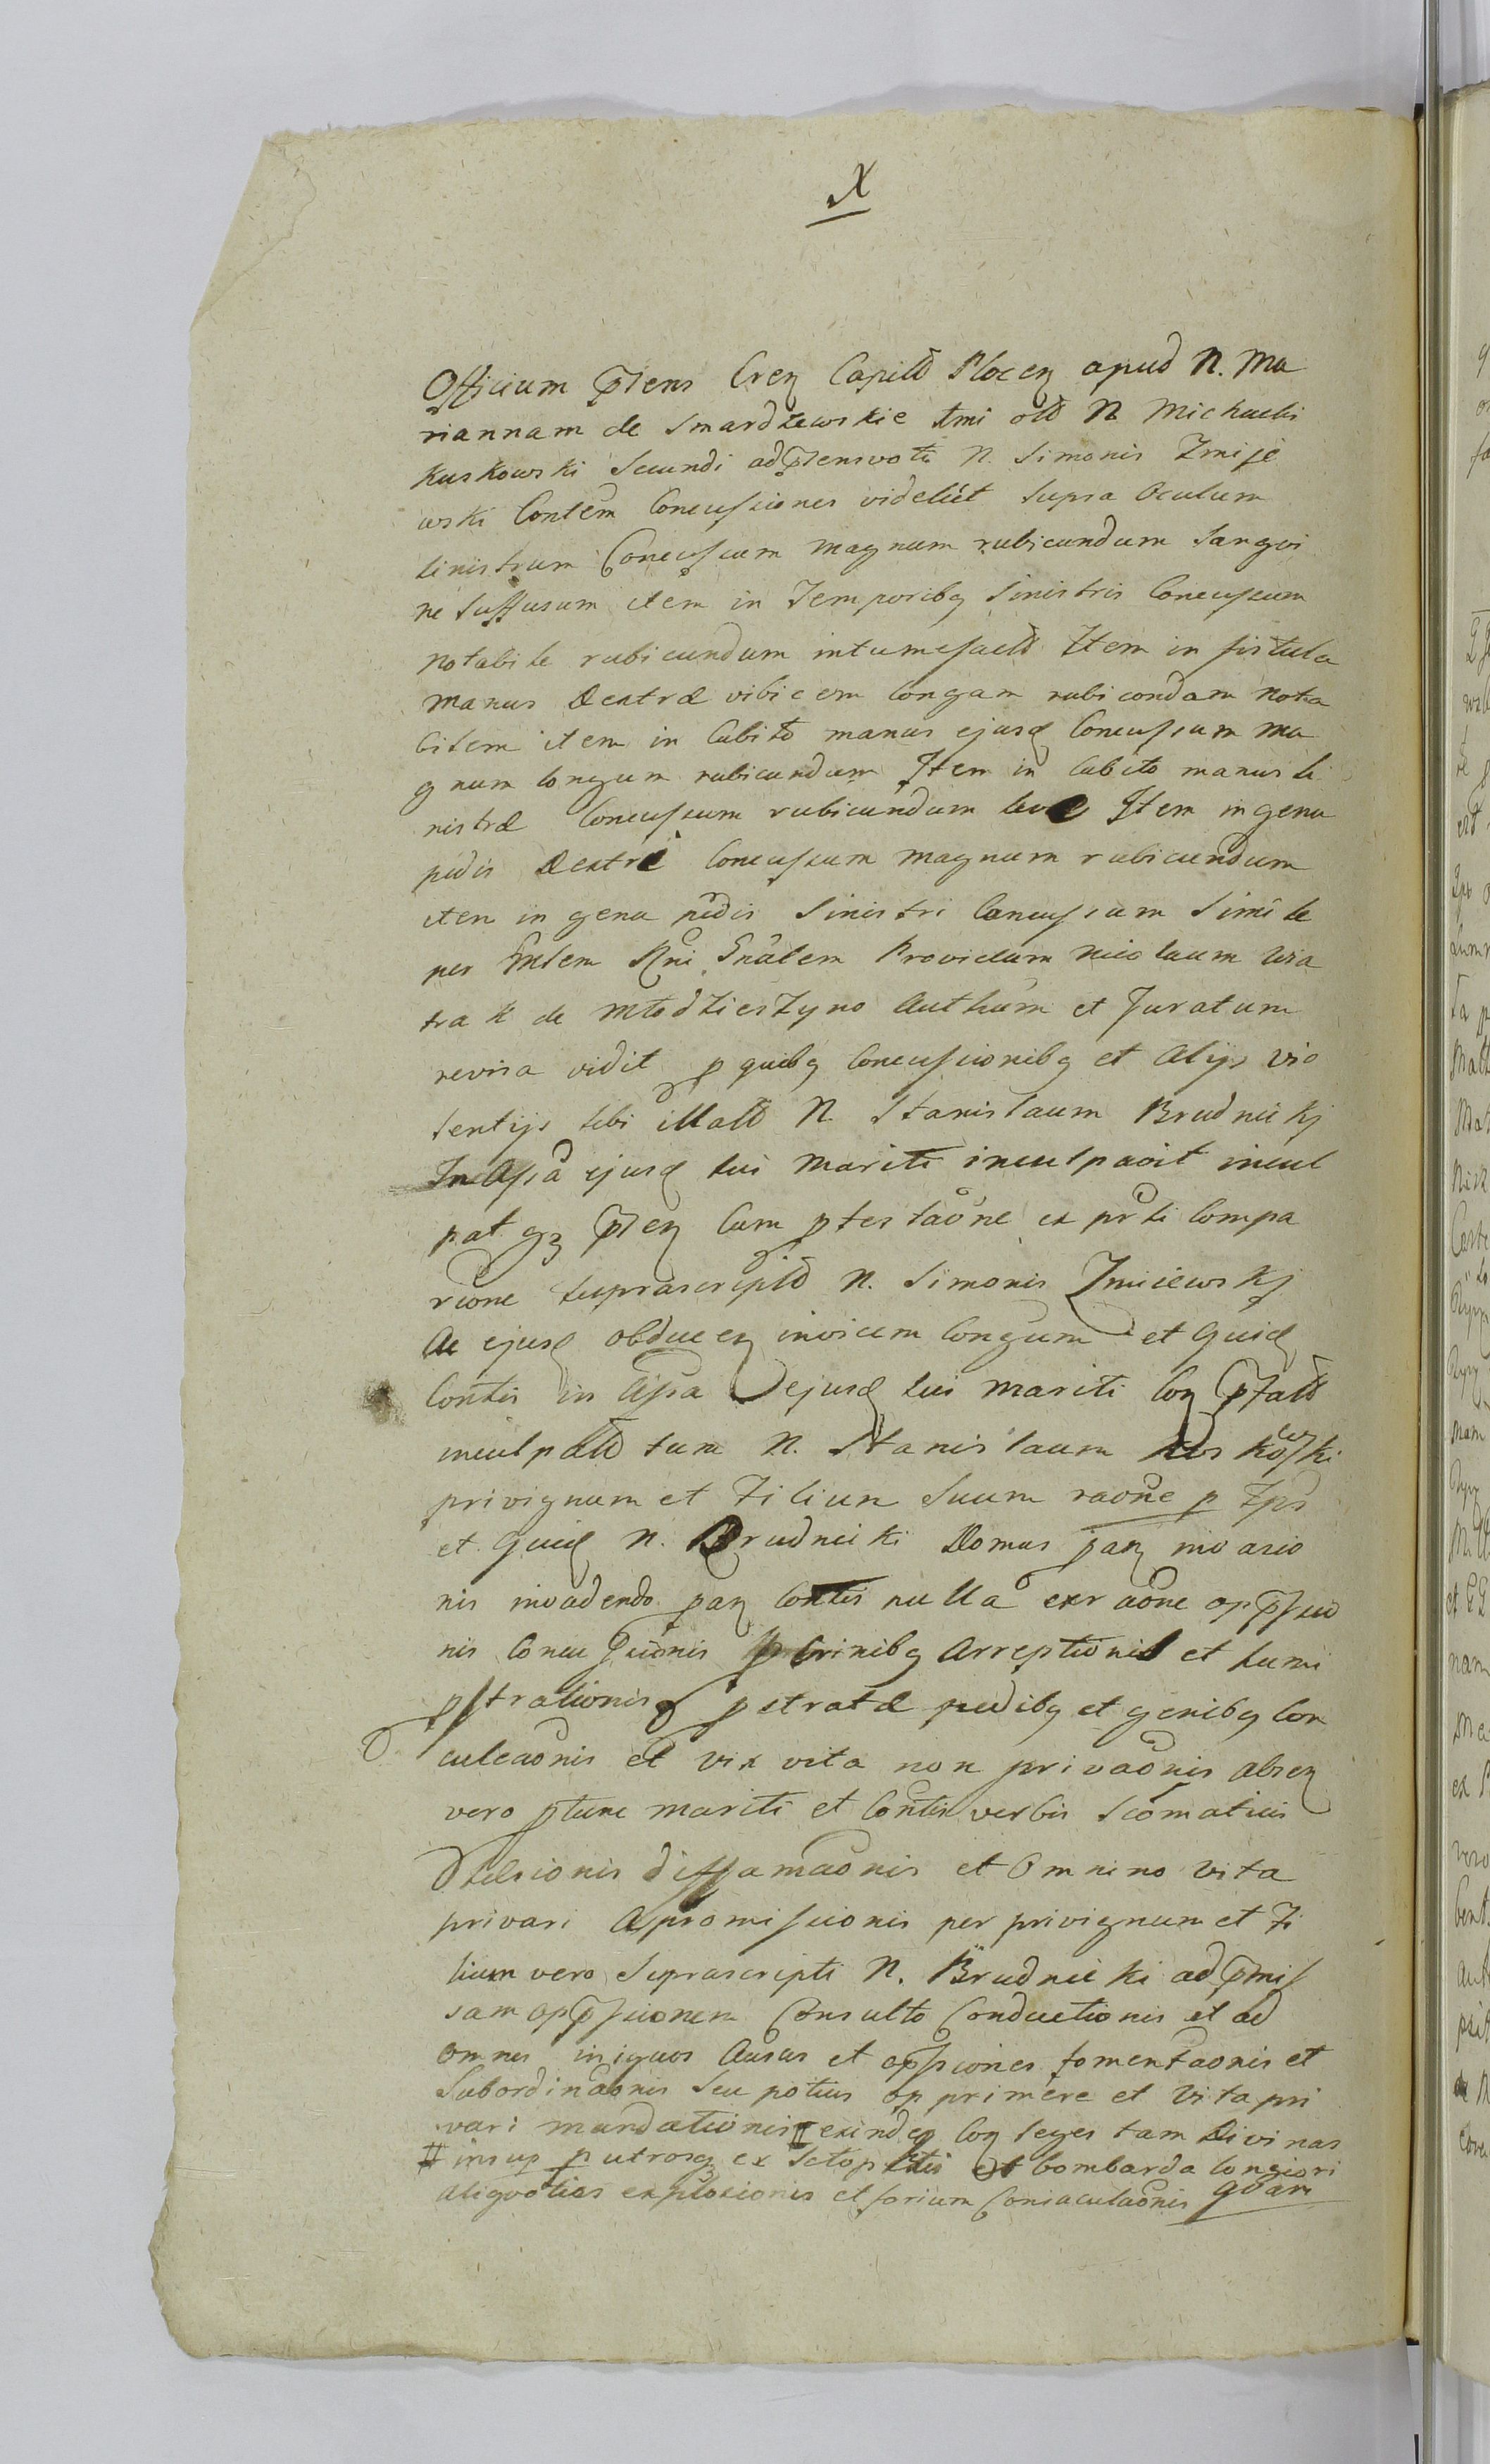 X
Officium pñens Cren Capitñ Plocen apud N. Ma
riannam de Smardzewskie 1mi olo N Michaelis
Kuskowski Secundi ad pñens voti N. Simonis Zmije
wski Contem Concussiones videlict supra Oculum
sinistrum Concussum magnum rubicundum Sangvi
ne suffusum item in Temporibq sinistris Concussum
notabile rubicundum intumefactū Item in fistula
manus Dextræ vibicem longam rubicondam nota
bilem item in Cubito manus ejusd Concussum ma
gnum longum rubicundum Item in Cubito manus si
nistræ Concussum rubicundum leve Item in genu
pedis Dextri Concussum magnum rubicundum
item in genu pedis Sinistri Concussum simile
per Mlem Rni Gnalem Providum Nicolaum Wia
trak de Młodzieszyno Authum et Juratum
revisa vidit p quibq Concussionibq et Alijs vio
lentijs sibi illatis N. Stanislaum Brudnickj
In Assa ejusd sui Mariti inculpavit incul
pat qz pñen Cum ptestaone ex prti Compa
rione suprascripti N. Simonis Zmiiewskj
Ac ejusd obducen invicem longum et Quid
Contis in Assa ejusd sui mariti Con pfato
inculpato tum N. Stanislaum Kuskowski
privignum et Filium Suum raone p Ips
et Quid N. Brudnicki Domus pan invasio
nis invadendo pan Contis nulla exr aone oppssio
nis Concussionis p Crinibq Arreptionis et humi
pstrationis pstratæ pedibq et genibq Con
culcaonis et vix vita non privaonis absen
vero ptunc mariti et Contis verbis Scomaticis
diffamaonis et Omnino vita
privari Apromissionis per privignum et Fi
lium vero Suprascripti N. Brudnicki ad pmis
sam oppssionem Consulto Conductionis et ad
omnes iniquos Ausus et oppssiones fomentaonis et
Subordinaonis Seu potius opprimere et Vita pri
vari mandationis # exindeq Con leges tam Divinas
# insup p utrosq ex Sclopetis et bombarda longiori
aliquoties explosionis et forium Coniaculaonis quam